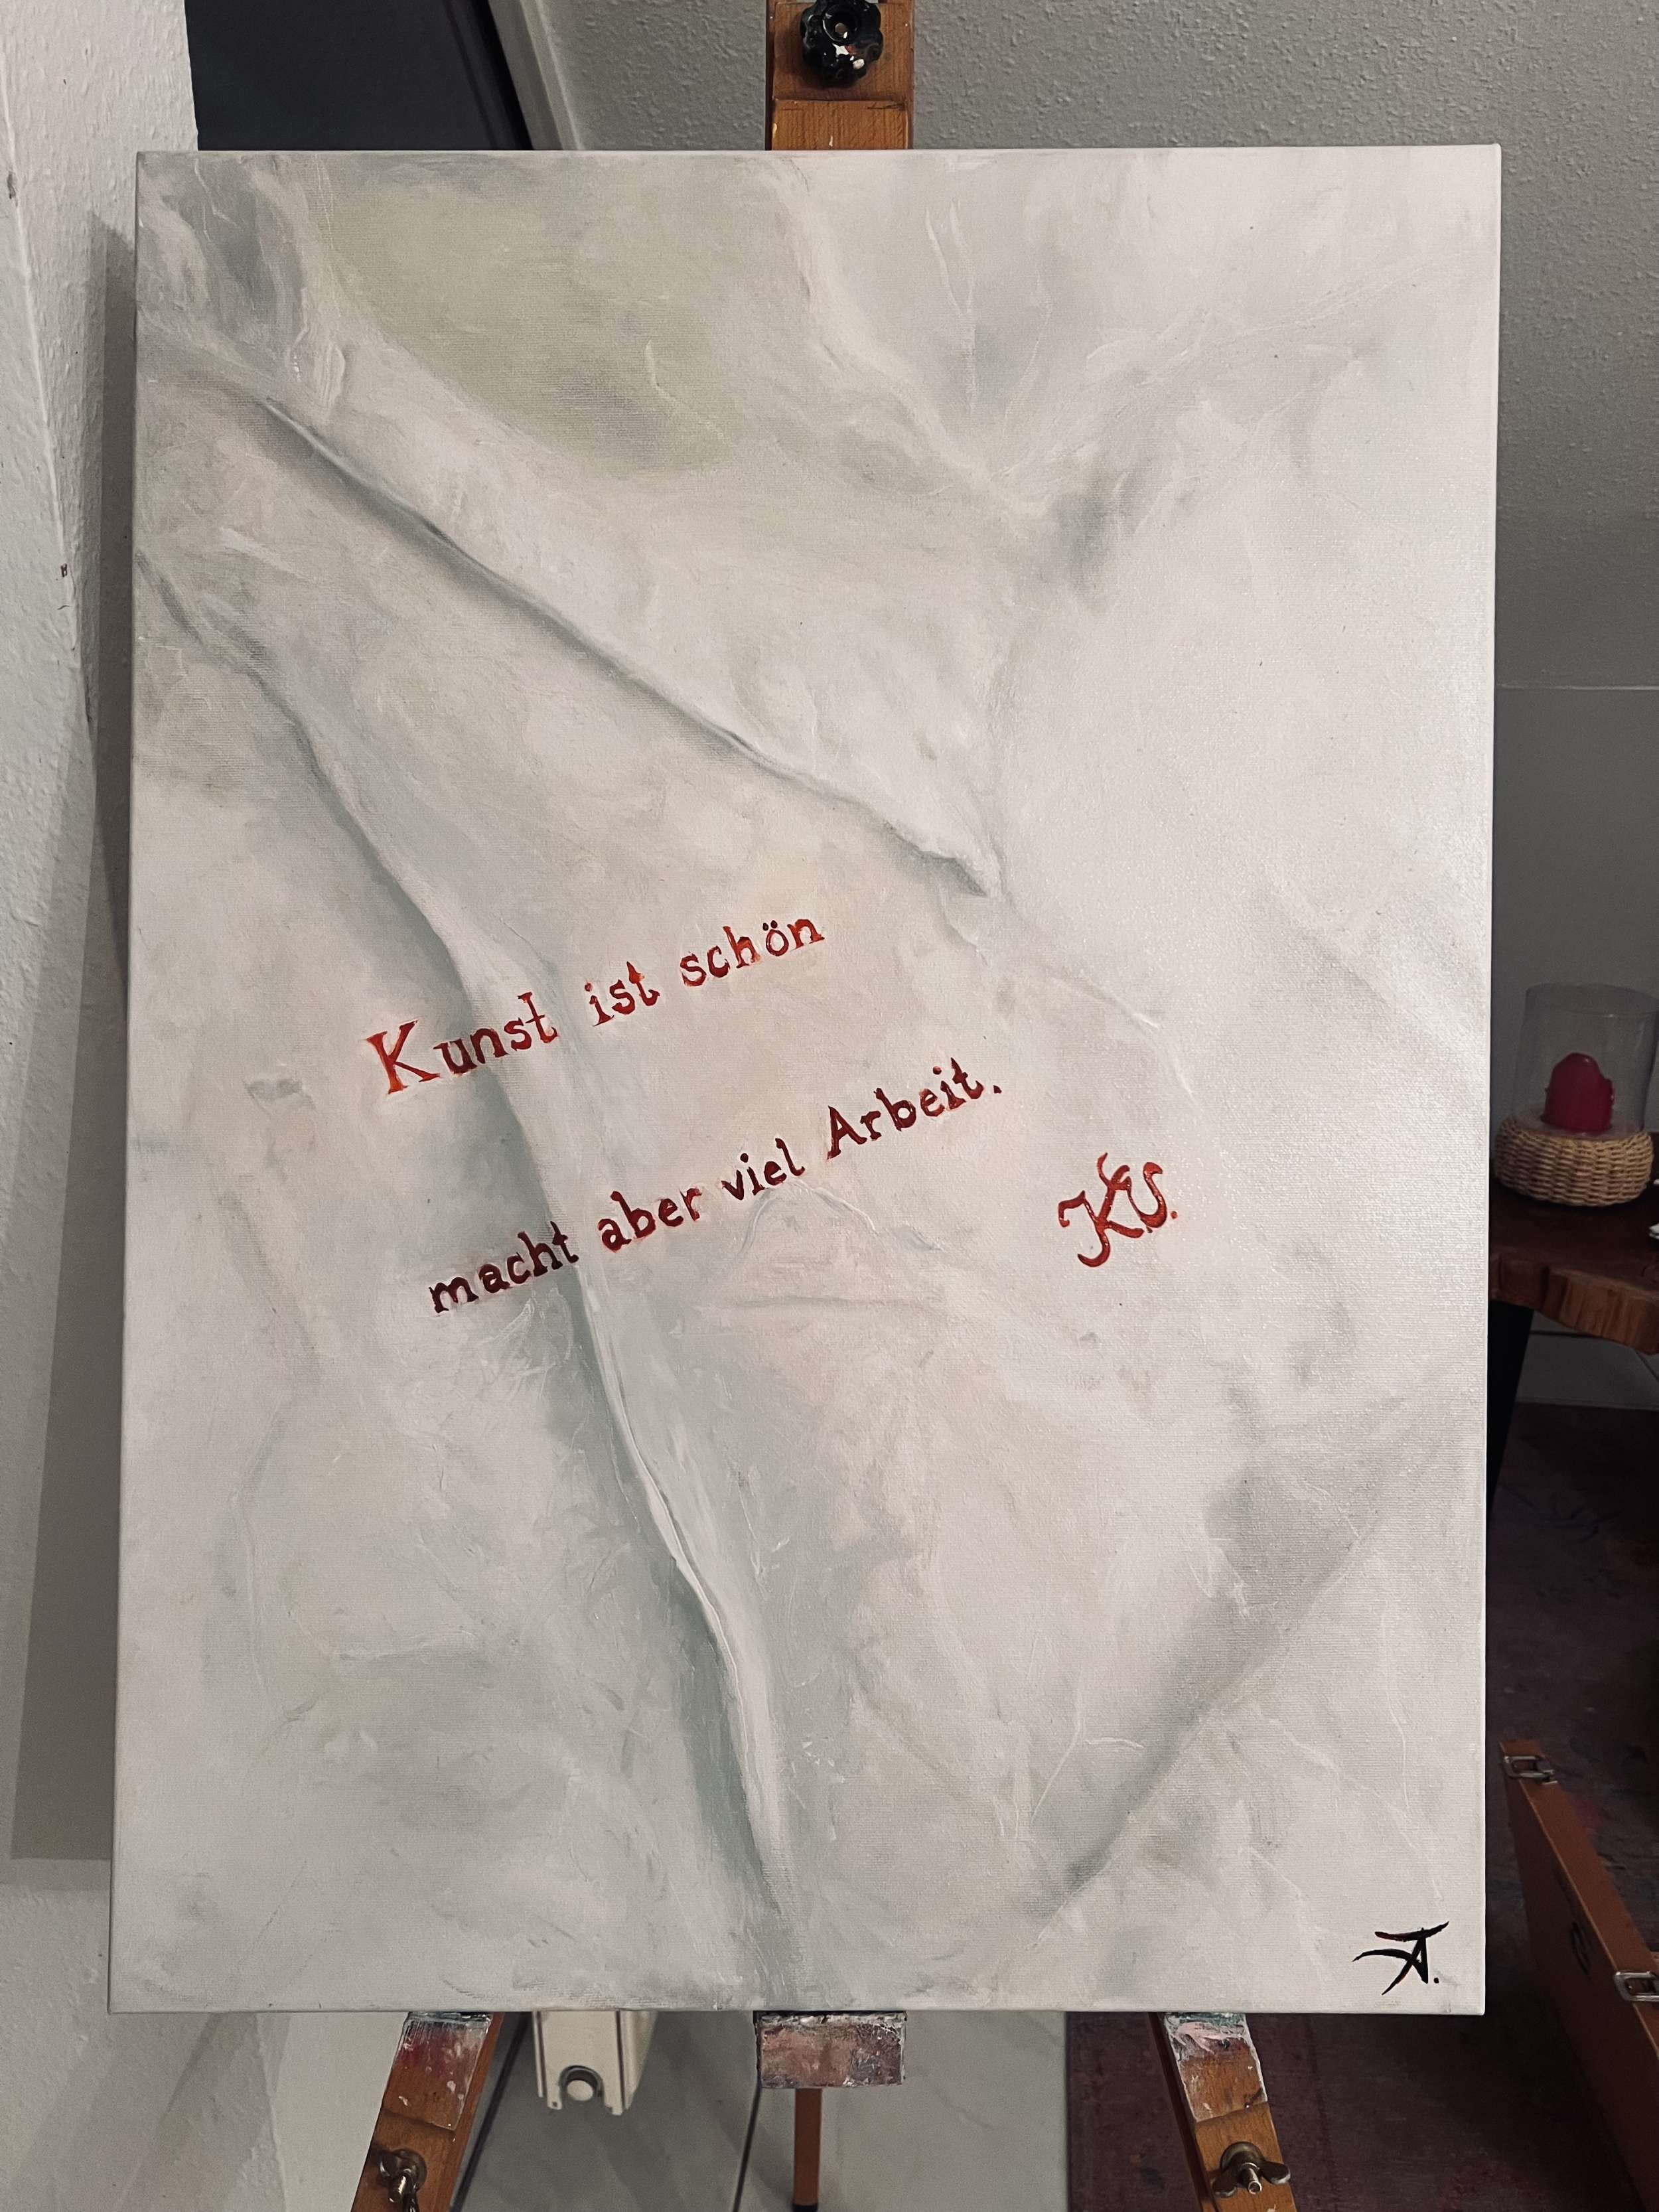 Kunst ist schön
macht aber viel Arbeit.